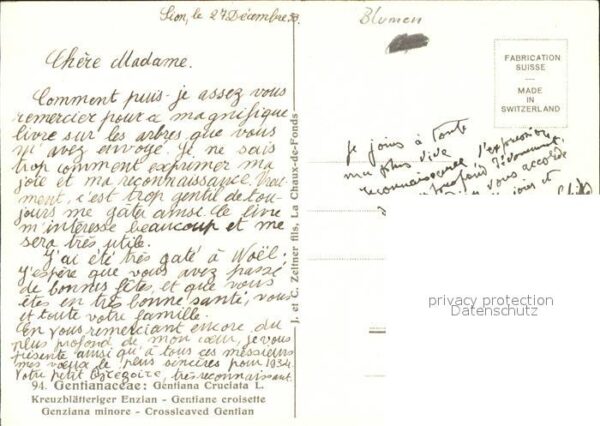 Sion, le 27 Décembre 33.
Chère Madame.
Comment puis-je assez vous
remercier pour ce magnifique
livre sur les arbres que vous
m'avez envoyé. Je ne sais
trop comment exprimer ma
joie et ma reconnaissance. Vrai-
ment, c'est trop gentil de tou-
jours me gâter ainsi. Le livre
m'intéresse beaucoup et me
sera très utile.
J'ai été très gaté à Noël;
J'espère que vous avez passé
de bonnes fêtes, et que vous
êtes en très bonne santé, vous
et toute votre famille.
En vous remerciant encore, du
plus profond de mon cœur, je vous
présente ainsi qu'à tous ces messieurs
mes vœux le plus sincères pour 1934.
Votre petit Grégoire, très reconnaissant.
94. Gentianaceae: Gentiana Cruciata L.
Kreuzblätteriger Enzian - Gentiane croisette
Genziana minore - Crossleaved Gentian
J. et C. Zeltner fils, La Chaux-de-Fonds
Blumen
FABRICATION
SUISSE
MADE
IN
SWITZERLAND
Je joins à toute
ma plus vive l'expression
reconnaissance
profond dévouement
vous accorde
et
privacy protection
Datenschutz